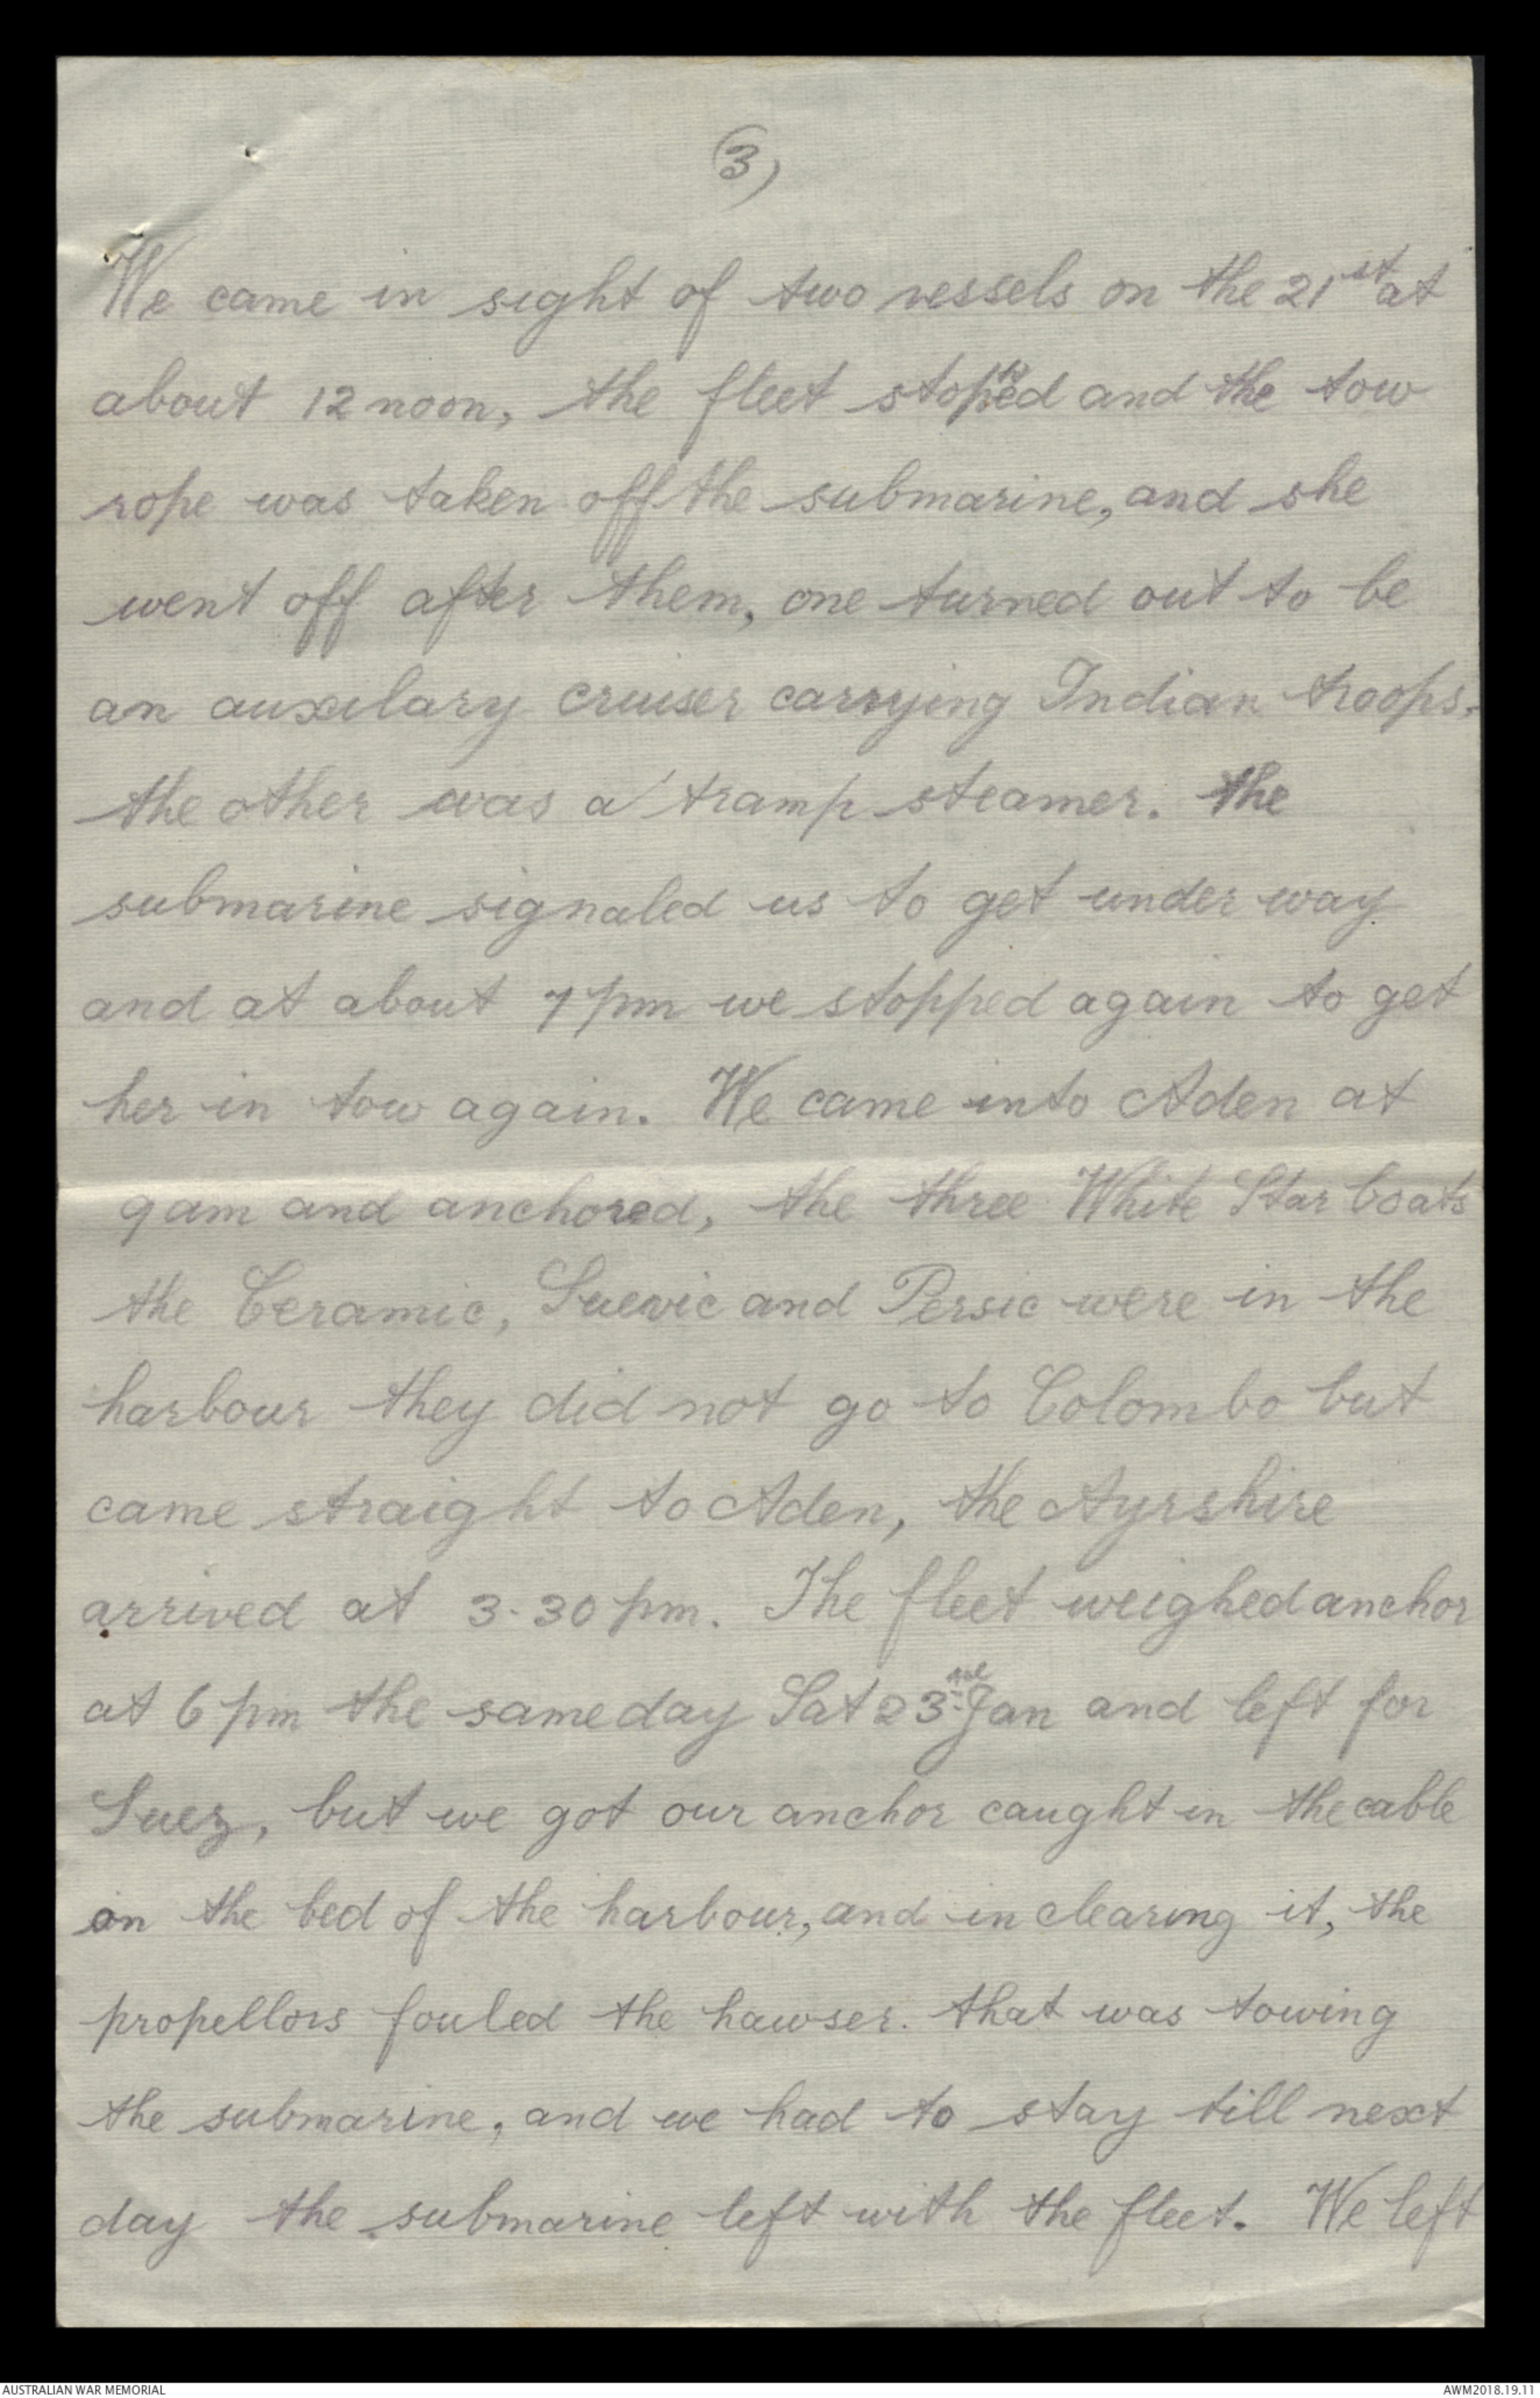 (3)
We came in sight of two vessels on the 21st at
about 12 noon, the fleet stopped and the tow
rope was taken off the submarine, and she
went off after them, one turned out to be
an auxilary cruiser carrying Indian troops.
the other was a tramp steamer. the
submarine signaled us to get under way
and at about 7 pm we stopped again to get
her in tow again. We came into Aden at
9 am and anchored, the three White Star boats
the Ceramic, Suevic and Persic were in the
harbour they did not go to Colombo but
came straight to Aden, the Ayrshire
arrived at 3.30 pm. The fleet weighed anchor
at 6 pm the same day Sat 23rd Jan and left for
Suez, but we got our anchor caught in the cable
on the bed of the harbour, and in clearing it, the
propellors fouled the hawser. that was towing
the submarine, and we had to stay till next
day the submarine left with the fleet. We left
AUSTRALIAN WAR MEMORIAL
AWM2018.19.11